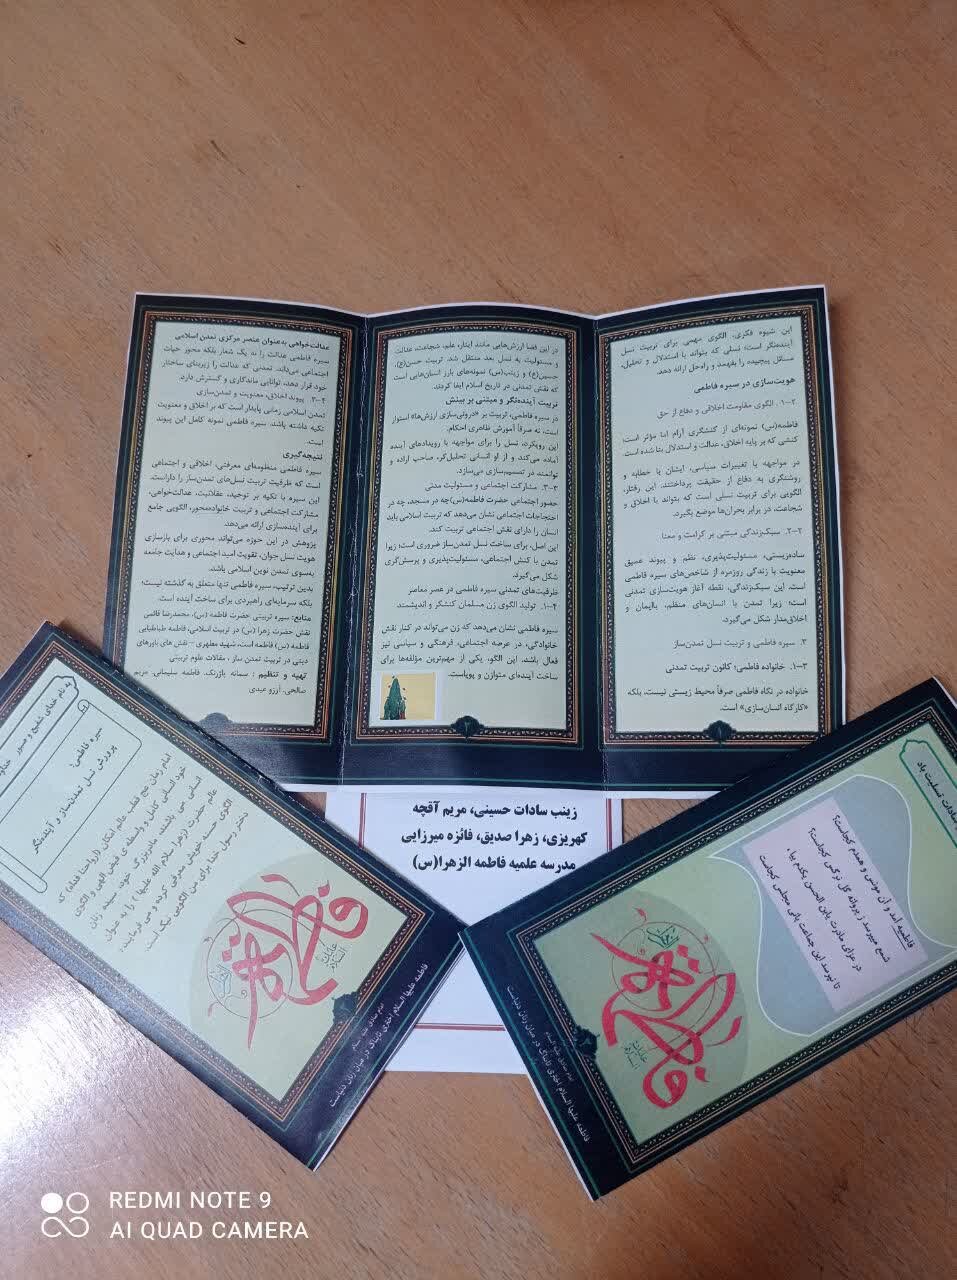 این شیوه فکری، الگوی مهمی برای تربیت نسل
آینده‌نگر است؛ نسلی که بتواند با استدلال و تحلیل،
مسائل پیچیده را بفهمد و راه‌حل ارائه دهد.
هویت‌سازی در سیره فاطمی
۲–۱. الگوی مقاومت اخلاقی و دفاع از حق
فاطمه(س) نمونه‌ای از کنشگری آرام اما مؤثر است؛
کنشی که بر پایه اخلاق، عدالت و استدلال بنا شده است.
در مواجهه با تغییرات سیاسی، ایشان با خطابه و
روشنگری به دفاع از حقیقت پرداختند. این رفتار،
الگویی برای تربیت نسلی است که بتواند با اخلاق و
شجاعت، در برابر بحران‌ها موضع بگیرد.
۲–۲. سبک‌زندگی مبتنی بر کرامت و معنا
ساده‌زیستی، مسئولیت‌پذیری، نظم و پیوند عمیق
معنویت با زندگی روزمره از شاخص‌های سیره فاطمی
است. این سبک‌زندگی، نقطه آغاز هویت‌سازی تمدنی
است؛ زیرا تمدن با انسان‌های منظم، باایمان و
اخلاق‌مدار شکل می‌گیرد.
۳. سیره فاطمی و تربیت نسل تمدن‌ساز
۳–۱. خانواده فاطمی؛ کانون تربیت تمدنی
خانواده در نگاه فاطمی صرفاً محیط زیستی نیست، بلکه
«کارگاه انسان‌سازی» است.
در این فضا ارزش‌هایی مانند ایثار، علم، شجاعت، عدالت
و مسئولیت به نسل بعد منتقل شد. تربیت حسن(ع)،
حسین(ع) و زینب(س) نمونه‌های بارز انسان‌هایی است
که نقش تمدنی در تاریخ اسلام ایفا کردند.
تربیت آینده‌نگر و مبتنی بر بینش
در سیره فاطمی، تربیت بر «درونی‌سازی ارزش‌ها» استوار
است، نه صرفاً آموزش ظاهری احکام.
این رویکرد، نسل را برای مواجهه با رویدادهای آینده
آماده می‌کند و از او انسانی تحلیل‌گر، صاحب اراده و
توانمند در تصمیم‌سازی می‌سازد.
۳–۳. مشارکت اجتماعی و مسئولیت مدنی
حضور اجتماعی حضرت فاطمه(س)چه در مسجد، چه در
احتجاجات اجتماعی نشان می‌دهد که تربیت اسلامی باید
انسان را دارای نقش اجتماعی تربیت کند.
این اصل، برای ساخت نسل تمدن‌ساز ضروری است؛ زیرا
تمدن با کنش اجتماعی، مسئولیت‌پذیری و پرسش‌گری
شکل می‌گیرد.
ظرفیت‌های تمدنی سیره فاطمی در عصر معاصر
۴–۱. تولید الگوی زن مسلمان کنشگر و اندیشمند
سیره فاطمی نشان می‌دهد که زن می‌تواند در کنار نقش
خانوادگی، در عرصه اجتماعی، فرهنگی و سیاسی نیز
فعال باشد. این الگو، یکی از مهم‌ترین مؤلفه‌ها برای
ساخت آینده‌ای متوازن و پویاست.
عدالت‌خواهی به‌عنوان عنصر مرکزی تمدن اسلامی
سیره فاطمی عدالت را نه یک شعار بلکه محور حیات
اجتماعی می‌داند. تمدنی که عدالت را زیربنای ساختار
خود قرار دهد، توانایی ماندگاری و گسترش دارد.
۴–۳. پیوند اخلاق، معنویت و تمدن‌سازی
تمدن اسلامی زمانی پایدار است که بر اخلاق و معنویت
تکیه داشته باشد. سیره فاطمی نمونه کامل این پیوند
است.
نتیجه‌گیری
سیره فاطمی منظومه‌ای معرفتی، اخلاقی و اجتماعی
است که ظرفیت تربیت نسل‌های تمدن‌ساز را داراست.
این سیره با تکیه بر توحید، عقلانیت، عدالت‌خواهی،
مشارکت اجتماعی و تربیت خانواده‌محور، الگویی جامع
برای آینده‌سازی ارائه می‌دهد.
پژوهش در این حوزه می‌تواند محوری برای بازسازی
هویت نسل جوان، تقویت امید اجتماعی و هدایت جامعه
به‌سوی تمدن نوین اسلامی باشد.
بدین ترتیب، سیره فاطمی تنها متعلق به گذشته نیست؛
بلکه سرمایه‌ای راهبردی برای ساخت آینده است.
منابع: سیره تربیتی حضرت فاطمه (س)، محمدرضا قائمی
نقش حضرت زهرا (س) در تربیت اسلامی، فاطمه طباطبایی
فاطمه (س) فاطمه است، شهید مطهری – نقش های باورهای
دینی در تربیت تمدن ساز ، مقالات علوم تربیتی
تهیه و تنظیم : سمانه باژرنگ. فاطمه سلیمانی. مریم
صالحی. آرزو عبدی
زینب سادات حسینی، مریم آقچه
کهریزی، زهرا صدیق، فائزه میرزایی
مدرسه علمیه فاطمه الزهرا(س)
سیره فاطمی؛
پرورش نسل تمدن‌ساز و آینده‌نگر
امام زمان عج قطب عالم امکان (ارواحنا فداه) که
خود انسانی کامل و واسطه‌ی فیض الهی و الگوی
انسانی می باشند، مادربزرگ خود، سیده زنان
عالم حضرت (زهرا سلام الله علیها ) را به عنوان
الگوی حسنه خویش معرفی کرده و می فرمایند:
دختر رسول خدا برای من الگویی نیک است
فاطمه
فاطمه علیها السلام اختری تابناک در میان زنان دنیاست
امام صادق علیه السلام
سادات تسلیت باد
فاطمیه آمد و آن مونس و همدم کجاست؟
شمع میپرسد ز پروانه گل نرگس کجاست؟
در عزای مادرت یابن الحسن یکدم بیا،
تا نپرسد این جماعت بانی مجلس کجاست
فاطمه
فاطمه علیها السلام اختری تابناک در میان زنان دنیاست
امام صادق علیه السلام
REDMI NOTE 9
AI QUAD CAMERA